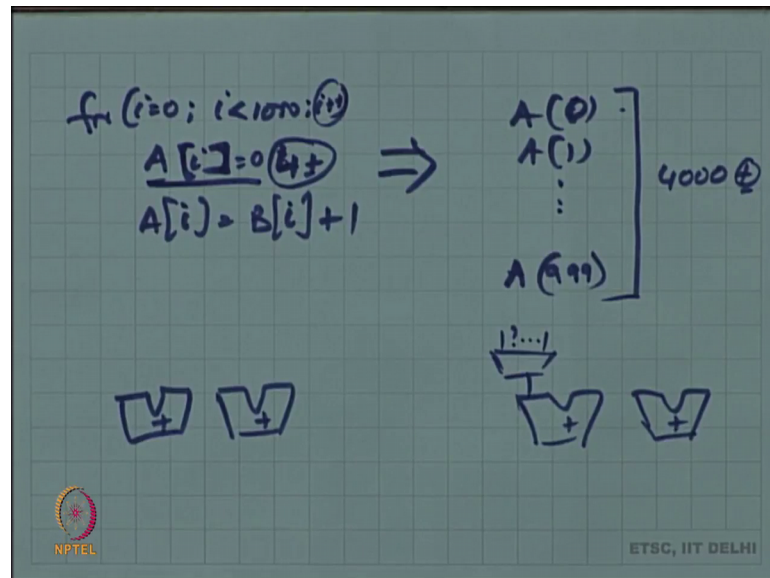 for (i=0; i<1000; i++
A[i]=0 i++
A[i] = B[i]+1
⇒
A(0)
A(1)
:
:
A(999)
4000 +
+
+
1?...1
+
+
NPTEL
ETSC, IIT DELHI